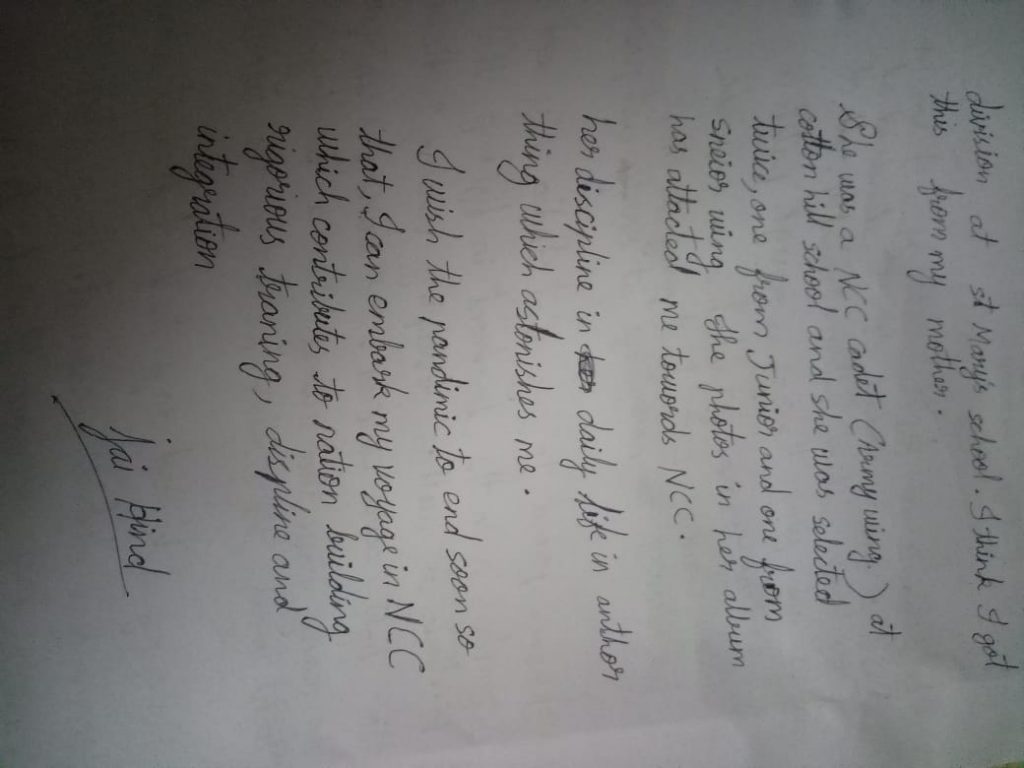 division at st Mary's school. I think I got
this from my mother.
She was a NCC cadet (Army wing) at
cotton hill school and she was selected
twice, one from Junior and one from
sneior wing the photos in her album
has attacted me towards NCC.
her discipline in daily life in anthor
thing which astonishes me.
I wish the pandimic to end soon so
that, I can embark my voyage in NCC
which contributes to nation building
rigorious traning, displine and
integration
Jai Hind